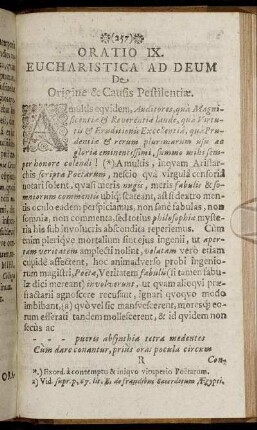 (257)
ORATIO IX.
EUCHARISTICA AD DEUM
De
Origine & Causis Pestilentiæ.
A multis eqvidem, Auditores, quâ Magni-
ficentiæ & Reverentiæ laude, quâ Virtu-
tis & Eruditionis Excellentiâ, quâ Pru-
dentiæ & rerum plurimarum usu ac
gloriâ eminentissimi, summo mihi sem-
per honore colendi! (*) A multis, inqvam Aristar-
chis scripta Poëtarum, nescio quâ virgulâ censoriâ
notari solent, quasi meris nugis, meris fabulis & so-
mniorum commentis ubiq; scateant, at si dextro men-
tis oculo eadem perspiciamus, non sanè fabulas, non
somnia, non commenta, sed totius philosophiæ myste-
ria his sub involucris abscondita reperiemus. Cùm
enim pleriqve mortalium sint ejus ingenii, ut aper-
tam veritatem amplecti nolint, velatam verò etiam
qvidè affectent, hoc animadverso probi ingenio-
rum magistri, Poëtæ, Veritatem fabulis (si tamen fabu-
læ dici mereant) involverunt, ut qvam alioqvi præ-
fractarii agnoscere recusent, ignari qvoqvo modo
imbibant, (a) qvò vel sic mansvescerent, moresq; eo-
rum efferati tandem mollescerent, & id qvidem non
secus ac
-- -- pueris absinthia tetra medentes
Cùm dare conantur, priùs oras pocula circum
R Con-
*) Exord. à contemptu & iniqvo vituperio Politarum.
a) Vid. supr. p. 67. lit. E. de fraudibus Sacerdotum Ægypti.